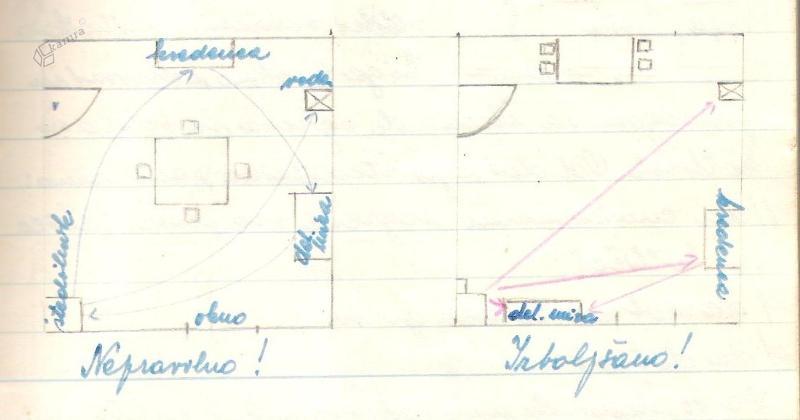 kamra
kredenca
voda
štedilnik
del.
miza
okno
Nepravilno!
kredenca
del. miza
Izboljšano!